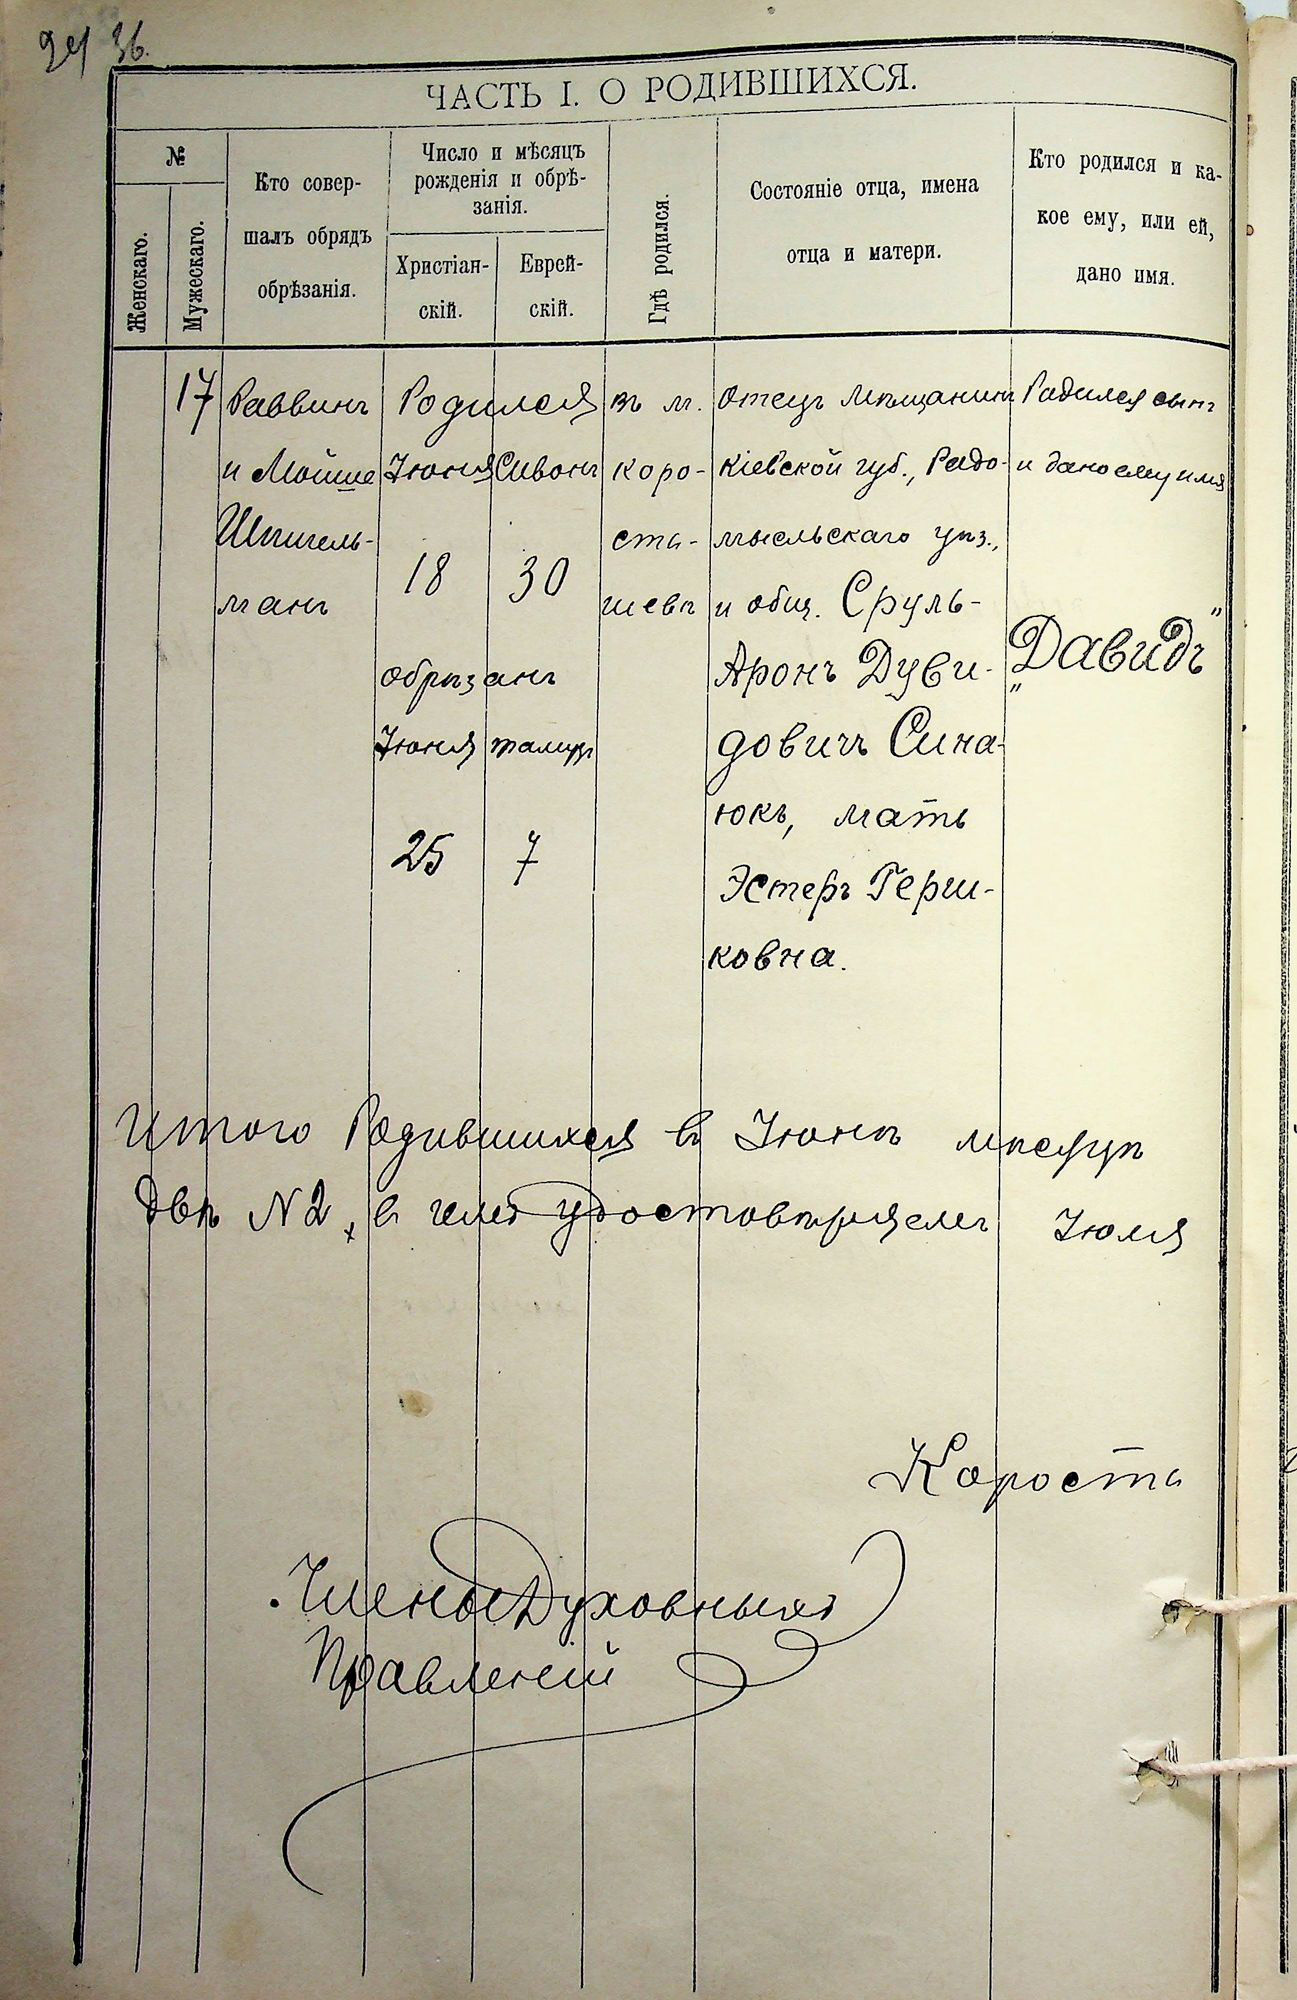 36.
ЧАСТЬ I. О РОДИВШИХСЯ.
№
Женскаго.
Мужескаго.
Кто совер-
шалъ обрядъ
обрѣзанія.
Число и мѣсяцъ
рожденія и обрѣ-
занія.
Христіан-
скій.
Еврей-
скій.
Гдѣ родился.
Состояніе отца, имена
отца и матери.
Кто родился и ка-
кое ему, или ей,
дано имя.
17
Раввинъ
и Мойше
Шпигель-
манъ
Родился
Іюня Сивонъ
18 30
обрѣзанъ
Іюня тамузъ
25 7
въ м.
Коро-
сты-
шевѣ
Отецъ мѣщанинъ
Кіевской губ., Радо-
мысльскаго уѣз.,
и общ. Сруль-
Аронъ Дуви-
довичъ Сина-
юкъ, мать
Эстеръ Герш-
ковна.
Родился сынъ
и дано ему имя
„Давидъ"
Итого Родившихся въ Іюнѣ мѣсяцѣ
двѣ N 2, въ чемъ удостовѣряемъ Іюля
Корост
Члены Духовныхъ
Правленій